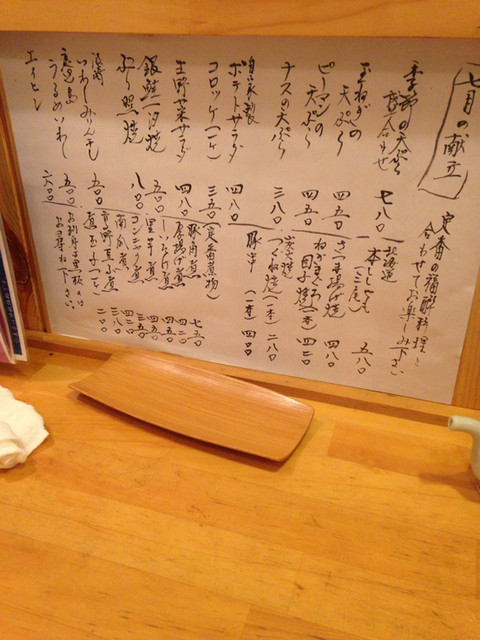 七月の献立
定番の福酔料理と
合わせてお楽しみ下さい
季節の天ぷら
盛合わせ
七八〇
玉ねぎの
天ぷら
四五〇
ピーマンの
天ぷら
四五〇
ナスの天ぷら
三八〇
自家製
ポテトサラダ
四八〇
コロッケ(一ケ)
三五〇
生野菜サラダ
四八〇
銀鮭一汐焼
五〇〇
ぶり照焼
八〇〇
いわしみりん干
五〇〇
鹿児島
うるめいわし
五〇〇
エイヒレ
六〇〇
北海道
本ししゃも
(二尾)
五八〇
さつま揚げ焼
四八〇
ねぎまぐろ
串焼(一本)
四二〇
つくね焼(一本)
二八〇
豚串(一本)
四〇〇
(定番煮物)
豚角煮
七五〇
厚揚げ煮
四二〇
しいたけ煮
四五〇
里芋煮
四五〇
コンニャク煮
三五〇
南瓜煮
高野豆腐煮
三八〇
煮玉子(一ケ)
二〇〇
お刺身は黒板又は
お尋ね下さい。